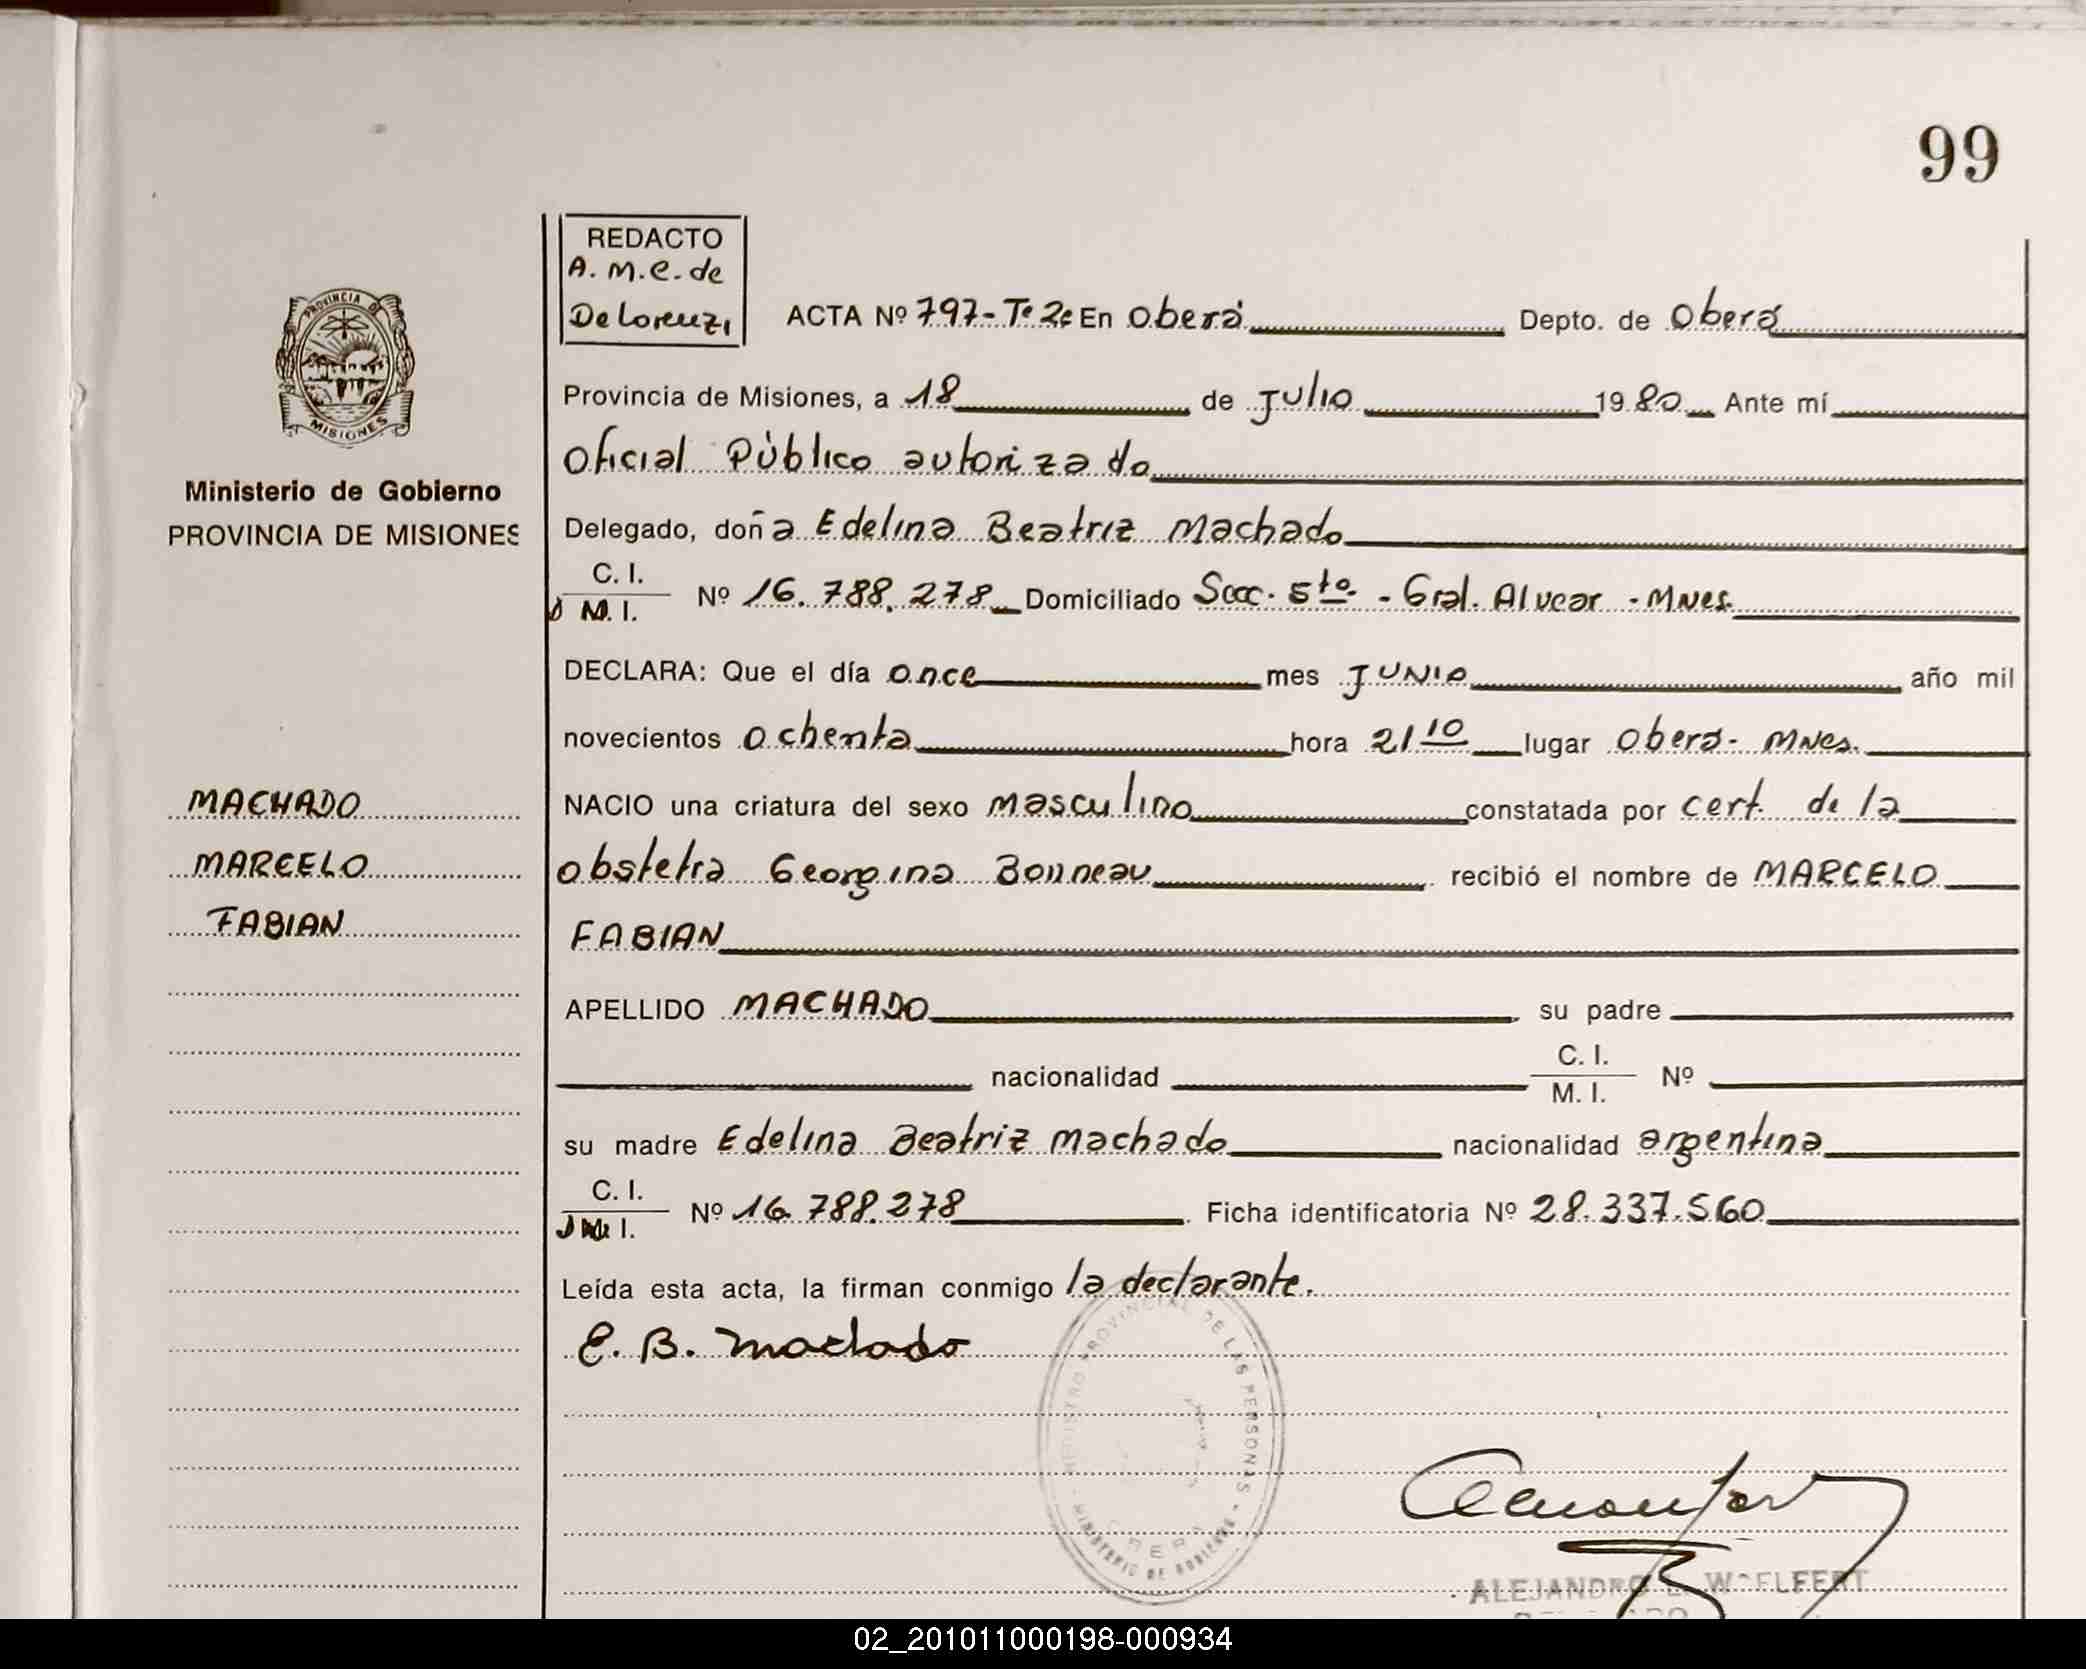 99
REDACTO
A. M. C. de
De Lorenzi
ACTA Nº 797-Tº 2º En Oberá Depto. de Oberá
Provincia de Misiones, a 18 de Julio 1980 Ante mí
Oficial Público autorizado
Delegado, doña Edelina Beatriz Machado
C. I.
D M. I. Nº 16.788.278 Domiciliado Secc. 5ta. - Gral. Alvear - Mnes.
DECLARA: Que el día once mes JUNIO año mil
novecientos ochenta hora 21 10 lugar Oberá - Mnes.
NACIO una criatura del sexo masculino constatada por cert. de la
obstetra Georgina Bonneau recibió el nombre de MARCELO
FABIAN
APELLIDO MACHADO su padre
nacionalidad C. I.
M. I. Nº
su madre Edelina Beatriz Machado nacionalidad argentina
C. I.
D M. I. Nº 16.788.278 Ficha identificatoria Nº 28.337.560
Leída esta acta, la firman conmigo la declarante.
E. B. Machado
PROVINCIA DE
MISIONES
Ministerio de Gobierno
PROVINCIA DE MISIONES
MACHADO
MARCELO
FABIAN
PROVINCIAL DE LAS PERSONAS - MINISTERIO DE GOBIERNO
ALEJANDRO
02_201011000198-000934